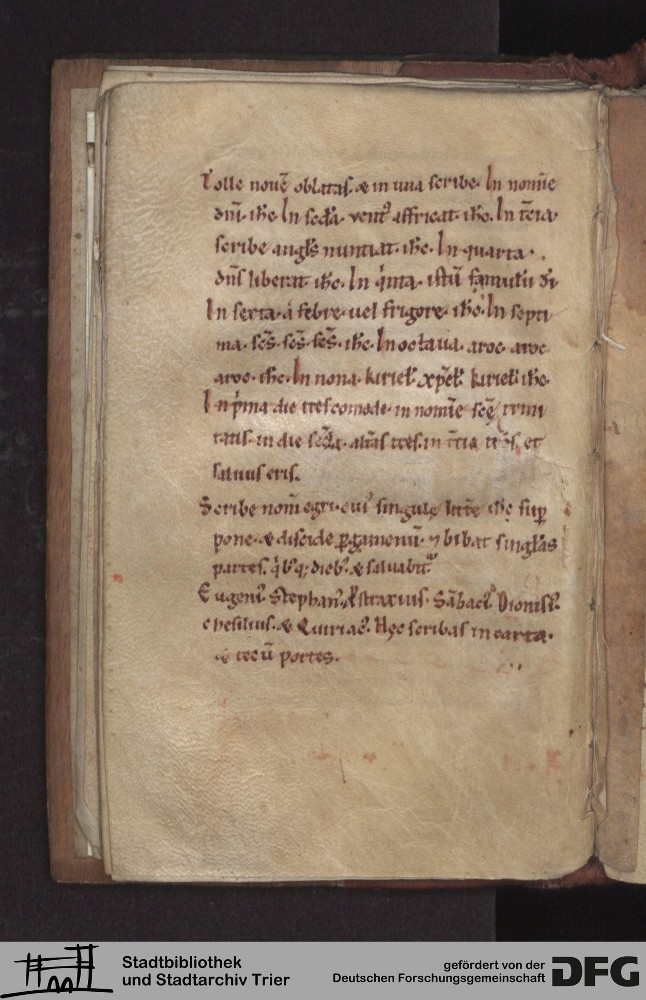 Tolle novē oblatas. & in una scribe. In nom̄e
dn̄i. ih̅c. In sec̄da. vent᾽ affricat. ih̅c. In t̄cia.
scribe angl̄s nuntiat. ih̅c. In quarta.
dn̄s liberat. ih̅c. In q̍nta. istū famulū dī
In sexta. á febre. uel frigore. ih̅c. In septi
ma. sc̄s. sc̄s. sc̄s. ih̅c. In octaua. aroc. aroc
aroc. ih̅c. In nona. kiriel̄. xp̄el̄. kiriel̄. ih̅c.
In p̍ma die tres comode. in nom̄e scē trini
tatis. in die sec̄da. al̄as tres. in t̄cia tr̄s. et
saluus eris.
Scribe nom̄ egri. cui᾽ singulę litt̄e ih̅c sup̱
pone. & discide p̱gamenū. ⁊ bibat singl̄as
partes. q̍b᾽q; dieb᾽. & saluabit᾽.
Eugeni᾽. Stephan᾽. Sābaci᾽. Dionisi᾽.
chesilius. & Quiriac᾽. Hęc scribas in carta.
& tecū portes.
Stadtbibliothek
und Stadtarchiv Trier
gefördert von der
Deutschen Forschungsgemeinschaft
DFG